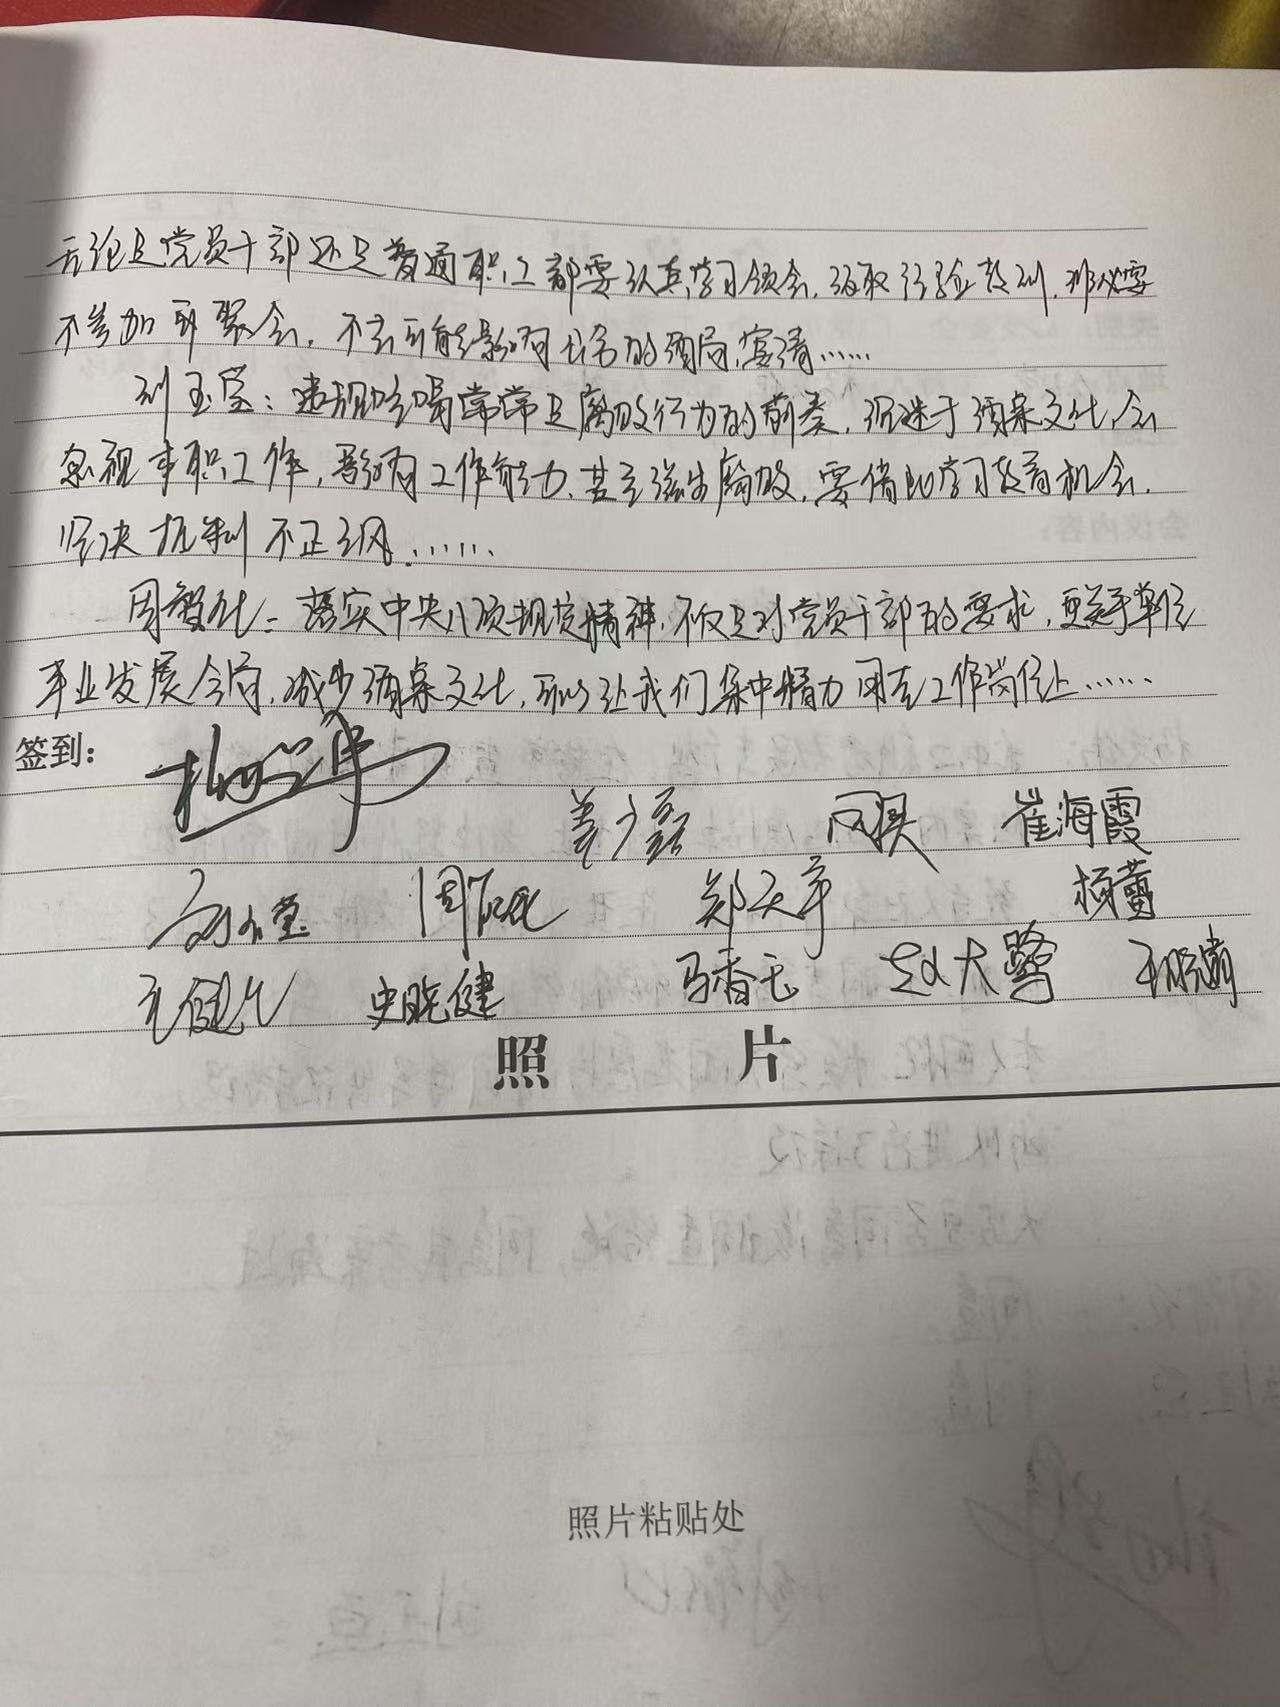 无论是党员干部还是普通职工都要认真学习领会，汲取经验教训，非必要
不参加聚会，不去可能影响公务的酒局，宴请……
刘玉莹：违规吃喝常常是腐败行为的前奏，沉迷于酒桌文化，会
忽视本职工作，影响工作能力，甚至滋生腐败，要借此学习教育机会，
坚决抵制不正之风……
周智化：落实中央八项规定精神，不仅是对党员干部的要求，更关乎单位
事业发展全局，减少酒桌文化，可以让我们集中精力用在工作岗位上……
签到：
姜少磊 崔海霞
郑天宇 杨蕾
史晓健 马香玉 赵大鹭
照 片
照片粘贴处